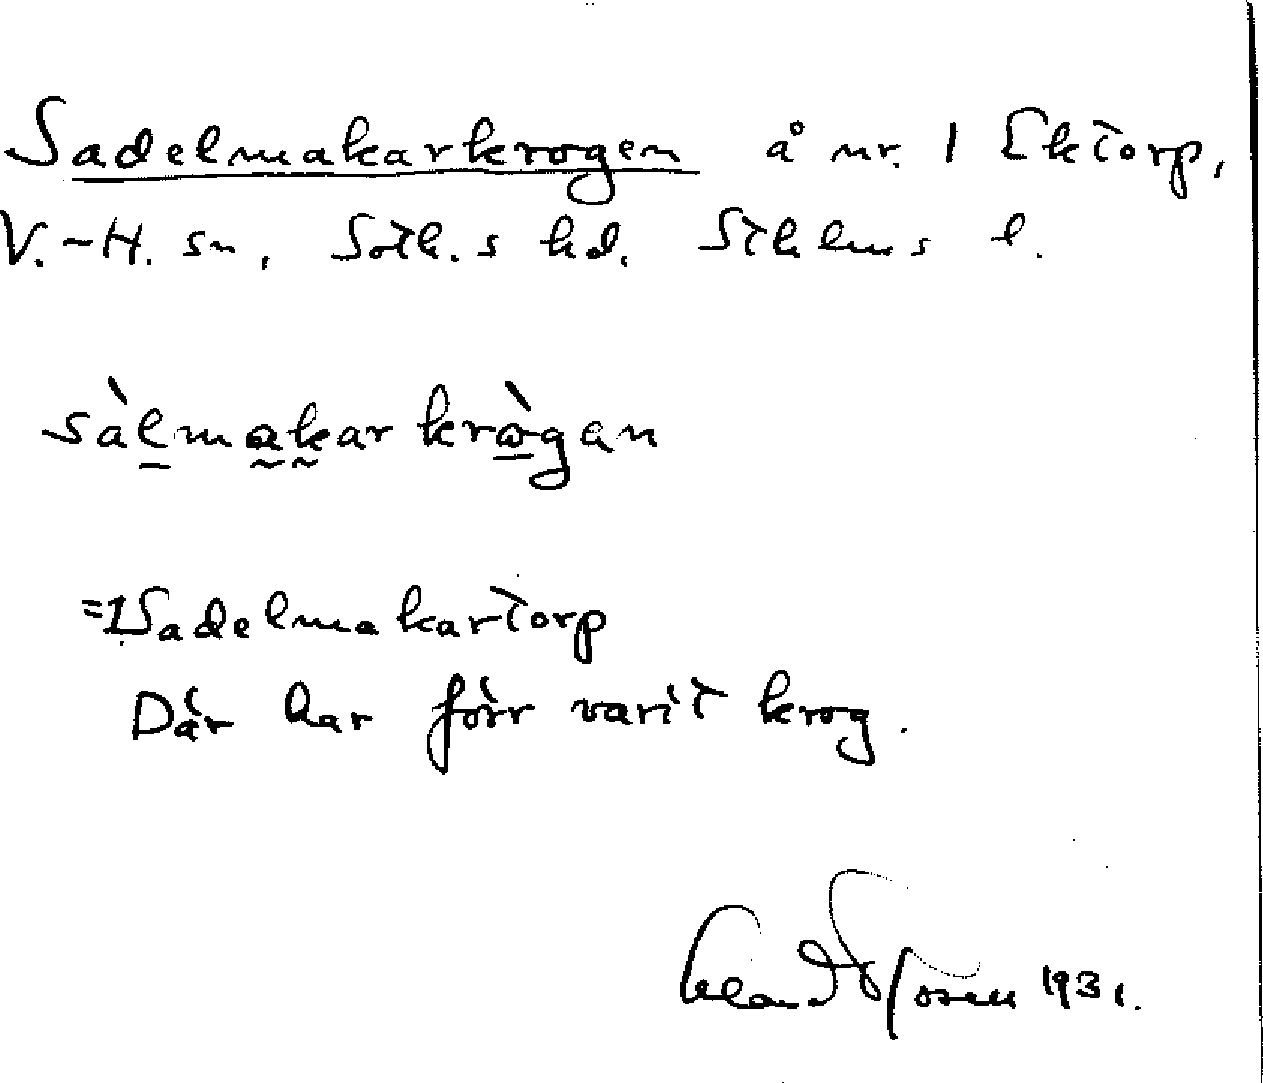 Sadelmakarkrogen å nr. 1 Ektorp,
V.-H. sn, Soth.s hd. Sthlms l.
sàlmakarkrògan
=1 Sadelmakartorp
Där har förr varit krog.
1931.